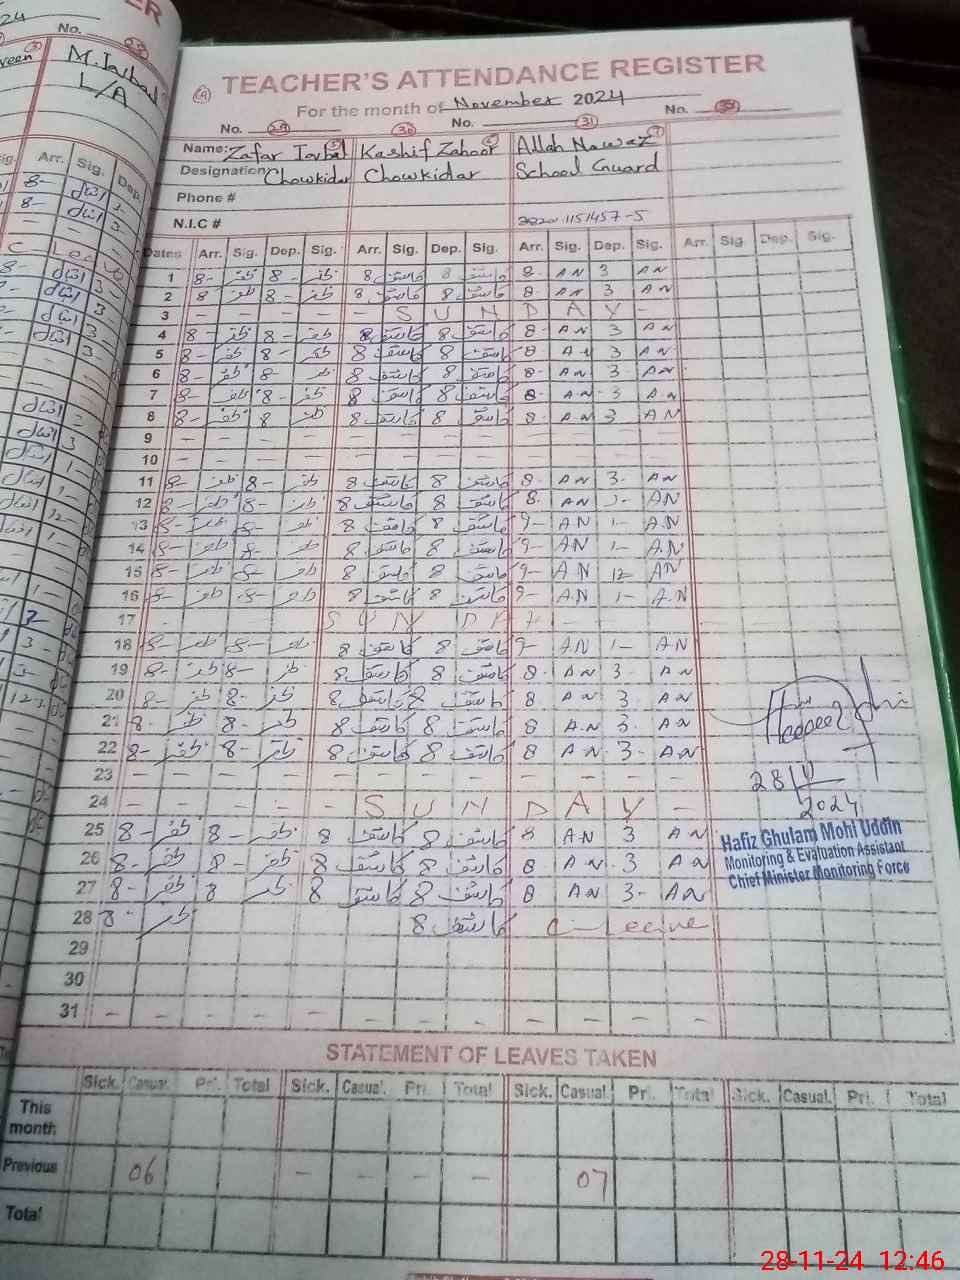 TEACHER'S ATTENDANCE REGISTER
For the month of November 2024
No. 29 30 No. 31 No.
Name: Zafar Iqbal Kashif Zahoor Allah Nawaz
Designation Chowkidar Chowkidar School Guard
Phone #
N.I.C # 1151457-5
Dates Arr. Sig. Dep. Sig. Arr. Sig. Dep. Sig. Arr. Sig. Dep. Sig. Arr. Sig. Dep. Sig.
1 8- ظفر 8- ظفر 8 کاشف 8 کاشف 8- AN 3 AN
2 8 ظفر 8- ظفر 8 کاشف 8 کاشف 8- AN 3 AN
3 - - - - - S U N D A Y -
4 8- ظفر 8- ظفر 8 کاشف 8 کاشف 8- AN 3 AN
5 8- ظفر 8- ظفر 8 کاشف 8 کاشف 8- AN 3 AN
6 8- ظفر 8- ظفر 8 کاشف 8 کاشف 8- AN 3- AN
7 8- ظفر 8- ظفر 8 کاشف 8 کاشف 8- AN 3 AN
8 8- ظفر 8 ظفر 8 کاشف 8 کاشف 8- AN 3 AN
9 - - - - - - - - - - - -
10 - - - - - - - - - - - -
11 8- ظفر 8- ظفر 8 کاشف 8 کاشف 8- AN 3- AN
12 8- ظفر 8- ظفر 8 کاشف 8 کاشف 8- AN 3- AN
13 8- ظفر 8- ظفر 8 کاشف 8 کاشف 9- AN 1- AN
14 8- ظفر 8- ظفر 8 کاشف 8 کاشف 9- AN 1- AN
15 8- ظفر 8- ظفر 8 کاشف 8 کاشف 9- AN 12- AN
16 8- ظفر 8- ظفر 8 کاشف 8 کاشف 9- AN 1- AN
17 - - - - S U N D A Y
18 8- ظفر 8- ظفر 8 کاشف 8 کاشف 9- AN 1- AN
19 8- ظفر 8- ظفر 8 کاشف 8 کاشف 8- AN 3- AN
20 8- ظفر 8- ظفر 8 کاشف 8 کاشف 8 AN 3 AN
21 8- ظفر 8- ظفر 8 کاشف 8 کاشف 8 AN 3- AN
22 8- ظفر 8- ظفر 8 کاشف 8 کاشف 8 AN 3- AN
23 - - - - - - - - - - - -
24 - - - - - S U N D A Y -
25 8- ظفر 8- ظفر 8 کاشف 8 کاشف 8 AN 3 AN
26 8- ظفر 8- ظفر 8 کاشف 8 کاشف 8 AN 3 AN
27 8- ظفر 8 ظفر 8 کاشف 8 کاشف 8 AN 3- AN
28 8- ظفر 8 کاشف C- Leave
29
30
31 - - - - - - - - - - - -
28/11/2024
Hafiz Ghulam Mohi Uddin
Monitoring & Evaluation Assistant
Chief Minister Monitoring Force
STATEMENT OF LEAVES TAKEN
Sick. Casual. Pri. Total Sick. Casual. Pri. Total Sick. Casual. Pri. Total Sick. Casual. Pri. Total
This month
Previous 06 - - - - 07
Total
No. 28
M. Iqbal
L/A
Arr. Sig. Dep.
28-11-24 12:46